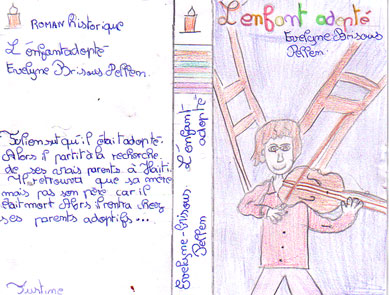 ROMAN historique
L'enfant adopté
Evelyne Brisous Pellen.
Julien sut qu'il était adopté.
Alors il partit à la recherche
de ses vrais parents à Haïti.
Il retrouva que sa mère
mais pas son père car il
était mort Alors il rentra chez
ses parents adoptifs...
Justine
Evelyne-Brisous
Pellen
L'enfant
adopté
L'enfant adopté
Evelyne Brisous
Pellen.